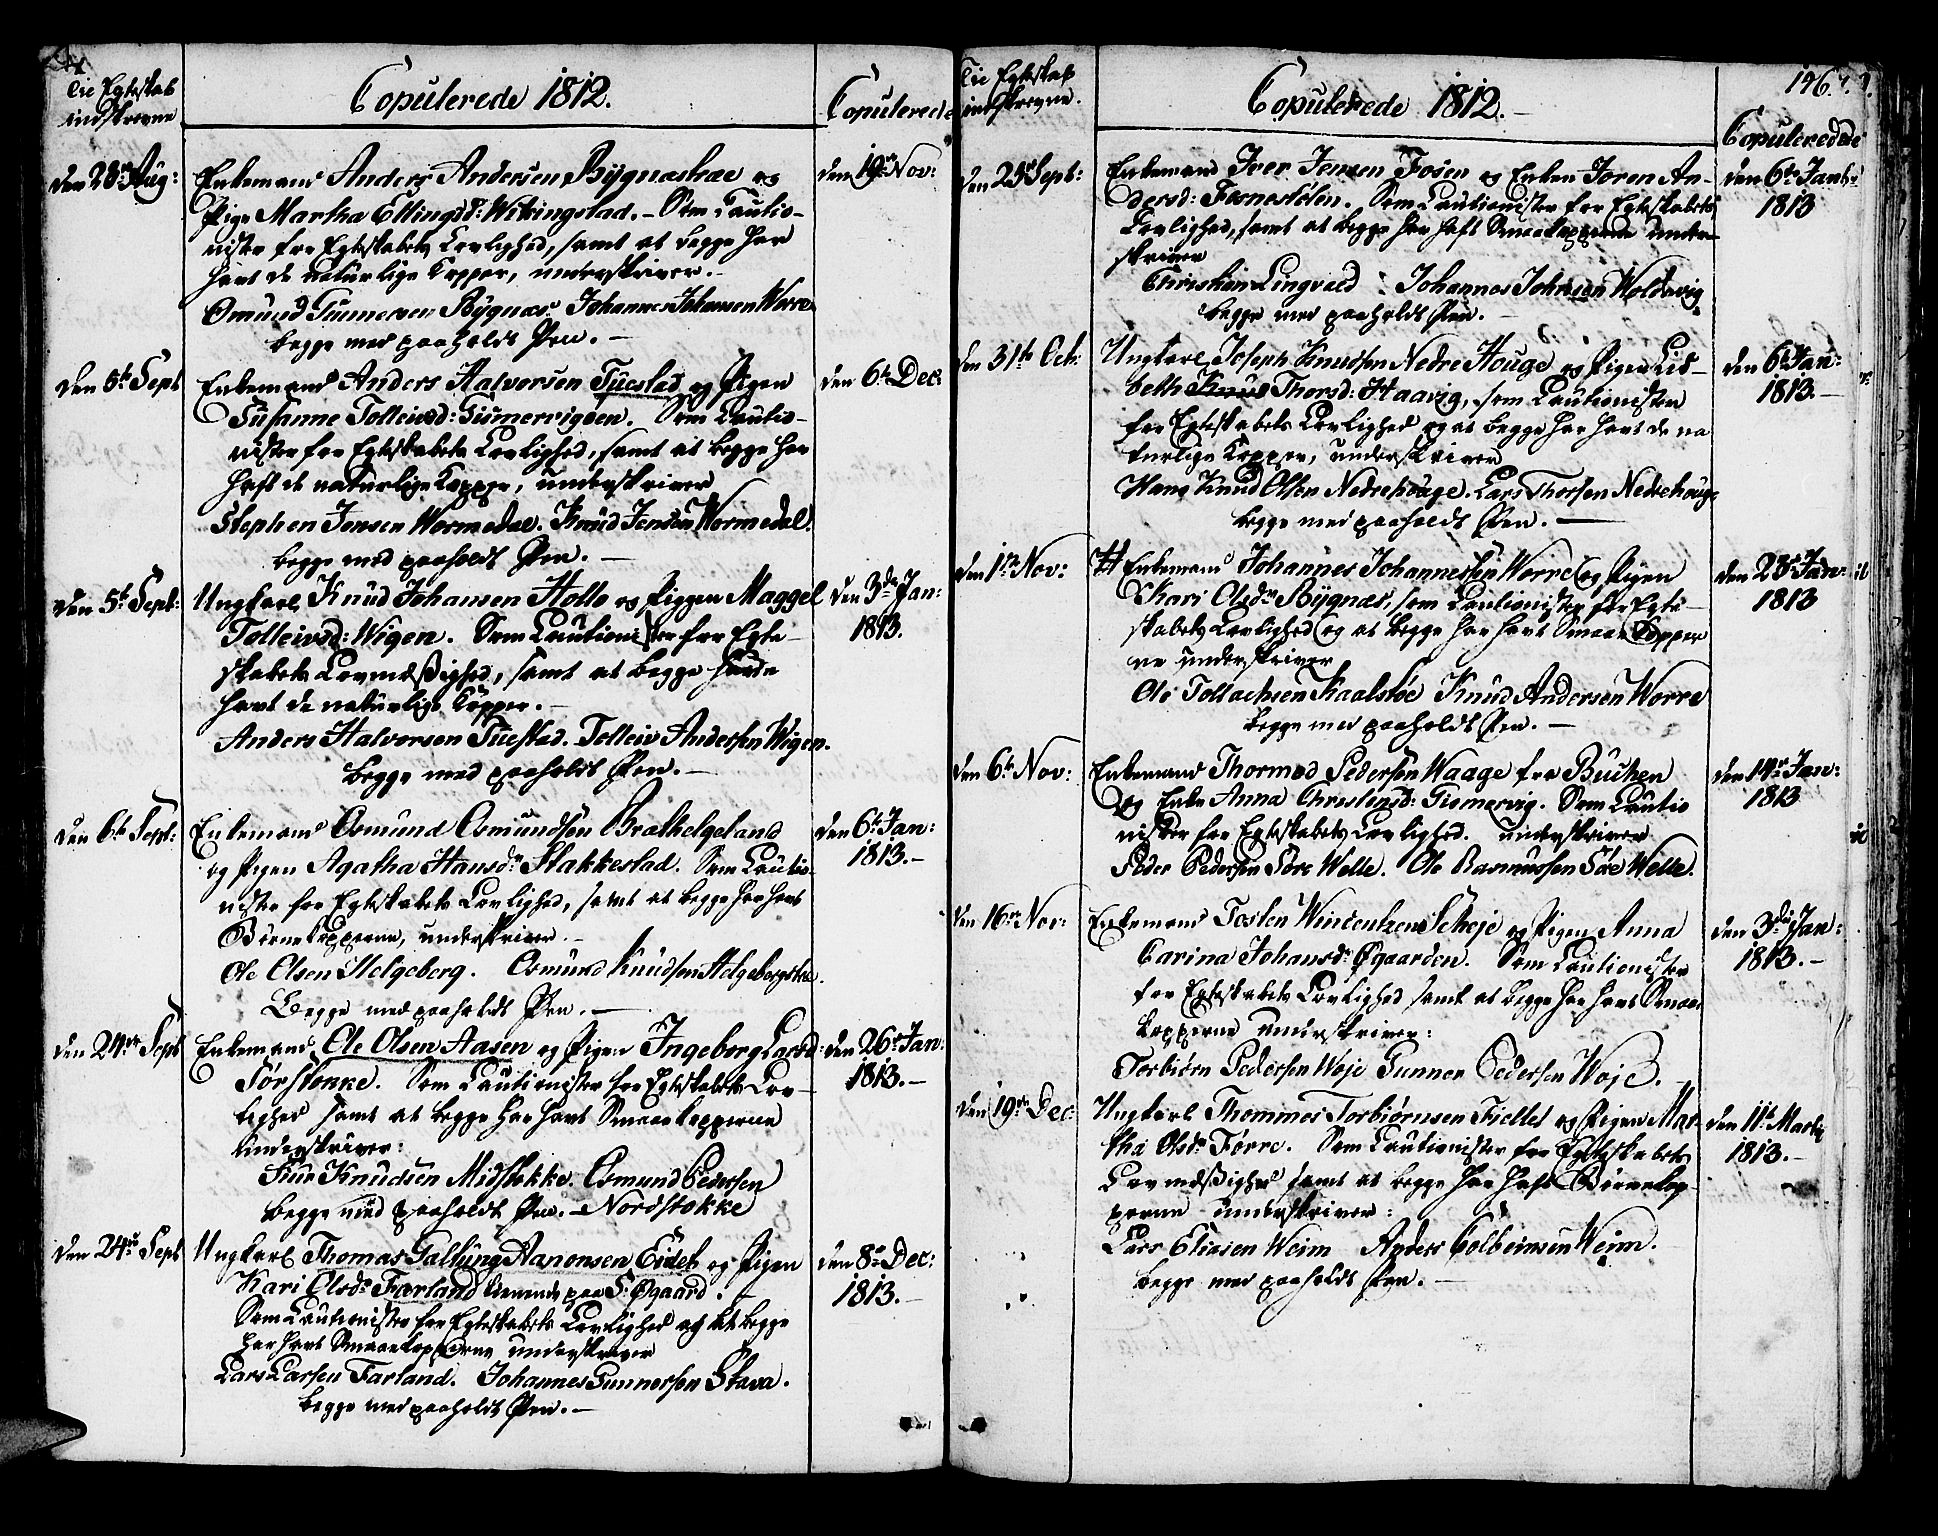 Til Egteskab
indskrevne
Copulerede 1812.
Copulerede
den 28de Aug:
Enkemand Anders Andersen Bygnæskae og
Pige Martha Ellingsd: Wikingstad. – Som Cautio-
nister for Egteskabets Lovlighed, samt at begge har
havt de naturlige Kopper, underskriver. –
Omund Gunnersen Bygnæs. Johannes Johansen Worre
begge med paaholdt Pen. –
den 19de Nov:
den 5te Sept
Enkemand Anders Halvorsen Tuestad og Pigen
Susanne Tolleivsd: Gismervigden. Som Cautio-
nister for Egteskabets Lovlighed, samt at begge har
haft de naturlige Kopper, underskriver
Stephen Jensen Wormedal. Knud Jensen Wormedal.
begge med paaholdt Pen. –
den 6te Dec:
den 5te Sept:
Ungkarl Knud Johansen Hollo og Pigen Maggel
Tolleivsd: Wigen. Som Cautionister for Egte-
skabets Lovmæssighed, samt at begge havde
havt de naturlige Kopper. –
Anders Halvorsen Tuestad. Tolleiv Andersen Wigen.
begge med paaholdt Pen. –
den 3de Jan:
1813.
den 6te Sept:
Enkemand Osmund Osmundsen Brathelgeland
og Pigen Agatha Hansdr Stakkestad. Som Cautio-
nister for Egteskabets Lovlighed, samt at begge har havt
Børnekopperne, underskriver. –
Ole Olsen Helgeberg. Osmund Knudsen Helgebergstee.
Begge med paaholdt Pen. –
den 6te Jan:
1813. –
den 24de Sept
Enkemand Ole Olsen Aasen og Pigen Ingeborg Larsd:
Sørstokke. Som Cautionister for Egteskabets Lov-
lighed samt at begge har havt Smaakopperne
underskriver:
Knudsen Midstokke. Osmund Pedersen
begge med paaholdt Pen. – Nordstokke
den 26de Jan:
1813. –
den 24de Sept
Ungkarl Thomas Salling Aanonsen Eidet og Pigen
Kari Olsdr Førland tienende paa S: Øgaard. –
Som Cautionister for Egteskabets Lovlighed og at begge
har havt Smaakopperne underskriver
Lars Larsen Farland. Johannes Gunnersen Stava.
begge med paaholdt Pen. –
den 8de Dec:
1813. –
Til Egteskab
indskrevne.
Copulerede 1812. –
146.
Copulerede
den 23de Sept:
Enkemand Iver Jensen Fosen og Enken Joren An-
dersd: Fosnestølen. Som Cautionister for Egteskabets
Lovlighed, samt at begge har haft Smaakopperne under-
skriver
Christian Lingvald : Johannes Johnsen Woldevig
begge med paaholdt Pen. –
den 6te Janr:
1813
den 31te Oct:
Ungkarl Joseph Knudsen Nedre Houge og Pigen Lis-
beth Knud Thorsd: Haavig, som Cautionister
for Egteskabets Lovlighed og at begge har havt de na
turlige Kopper, underskriver
Hans Knud Olsen Nedrehouge. Lars Thorsen Nedrehouge
begge med paaholdt Pen. –
den 6te Jan:
1813. –
den 1ste Nov:
# Enkemand Johannes Johannessen Worre og Pigen
Kari Olsdr Bygnæs, som Cautionister for Egte-
skabets Lovlighed og at begge har havt Smaae Kopper
ne underskriver
Ole Tollachsen Kaalstøe Knud Andersen Worre
begge med paaholdt Pen. –
den 28de Jan:
1813
den 6te Nov:
Enkemand Thormod Pedersen Waage fra Buchen
og Enke Anna Christensd: Gismervig. Som Cautio
nister for Egteskabets Lovlighed. underskriver
Peder Pedersen Søre Welle. Ole Rasmussen Søre Welle.
den 14de Jan:
1813
den 16de Nov:
Enkemand Tosten Weincentzen Scheje og Pigen Anna
Carina Johansdr Øgaarden. Som Cautionister
for Egteskabets Lovlighed samt at begge har havt Smaae
kopperne underskriver:
Torbiørn Pedersen Woje Gunner Pedersen Woje. –
den 3de Jan:
1813. –
den 19de Dec:
Ungkarl Thommes Torbiørnsen Fieldet og Pigen Mar-
tha Olsdr Førre. Som Cautionister for Egteskabets
Lovmæssighed samt at begge har haft Børnekop
perne underskriver:
Lars Eliasen Weim Anders Colbeinsen Weim.
begge med paaholdt Pen. –
den 11te Marti
1813. –